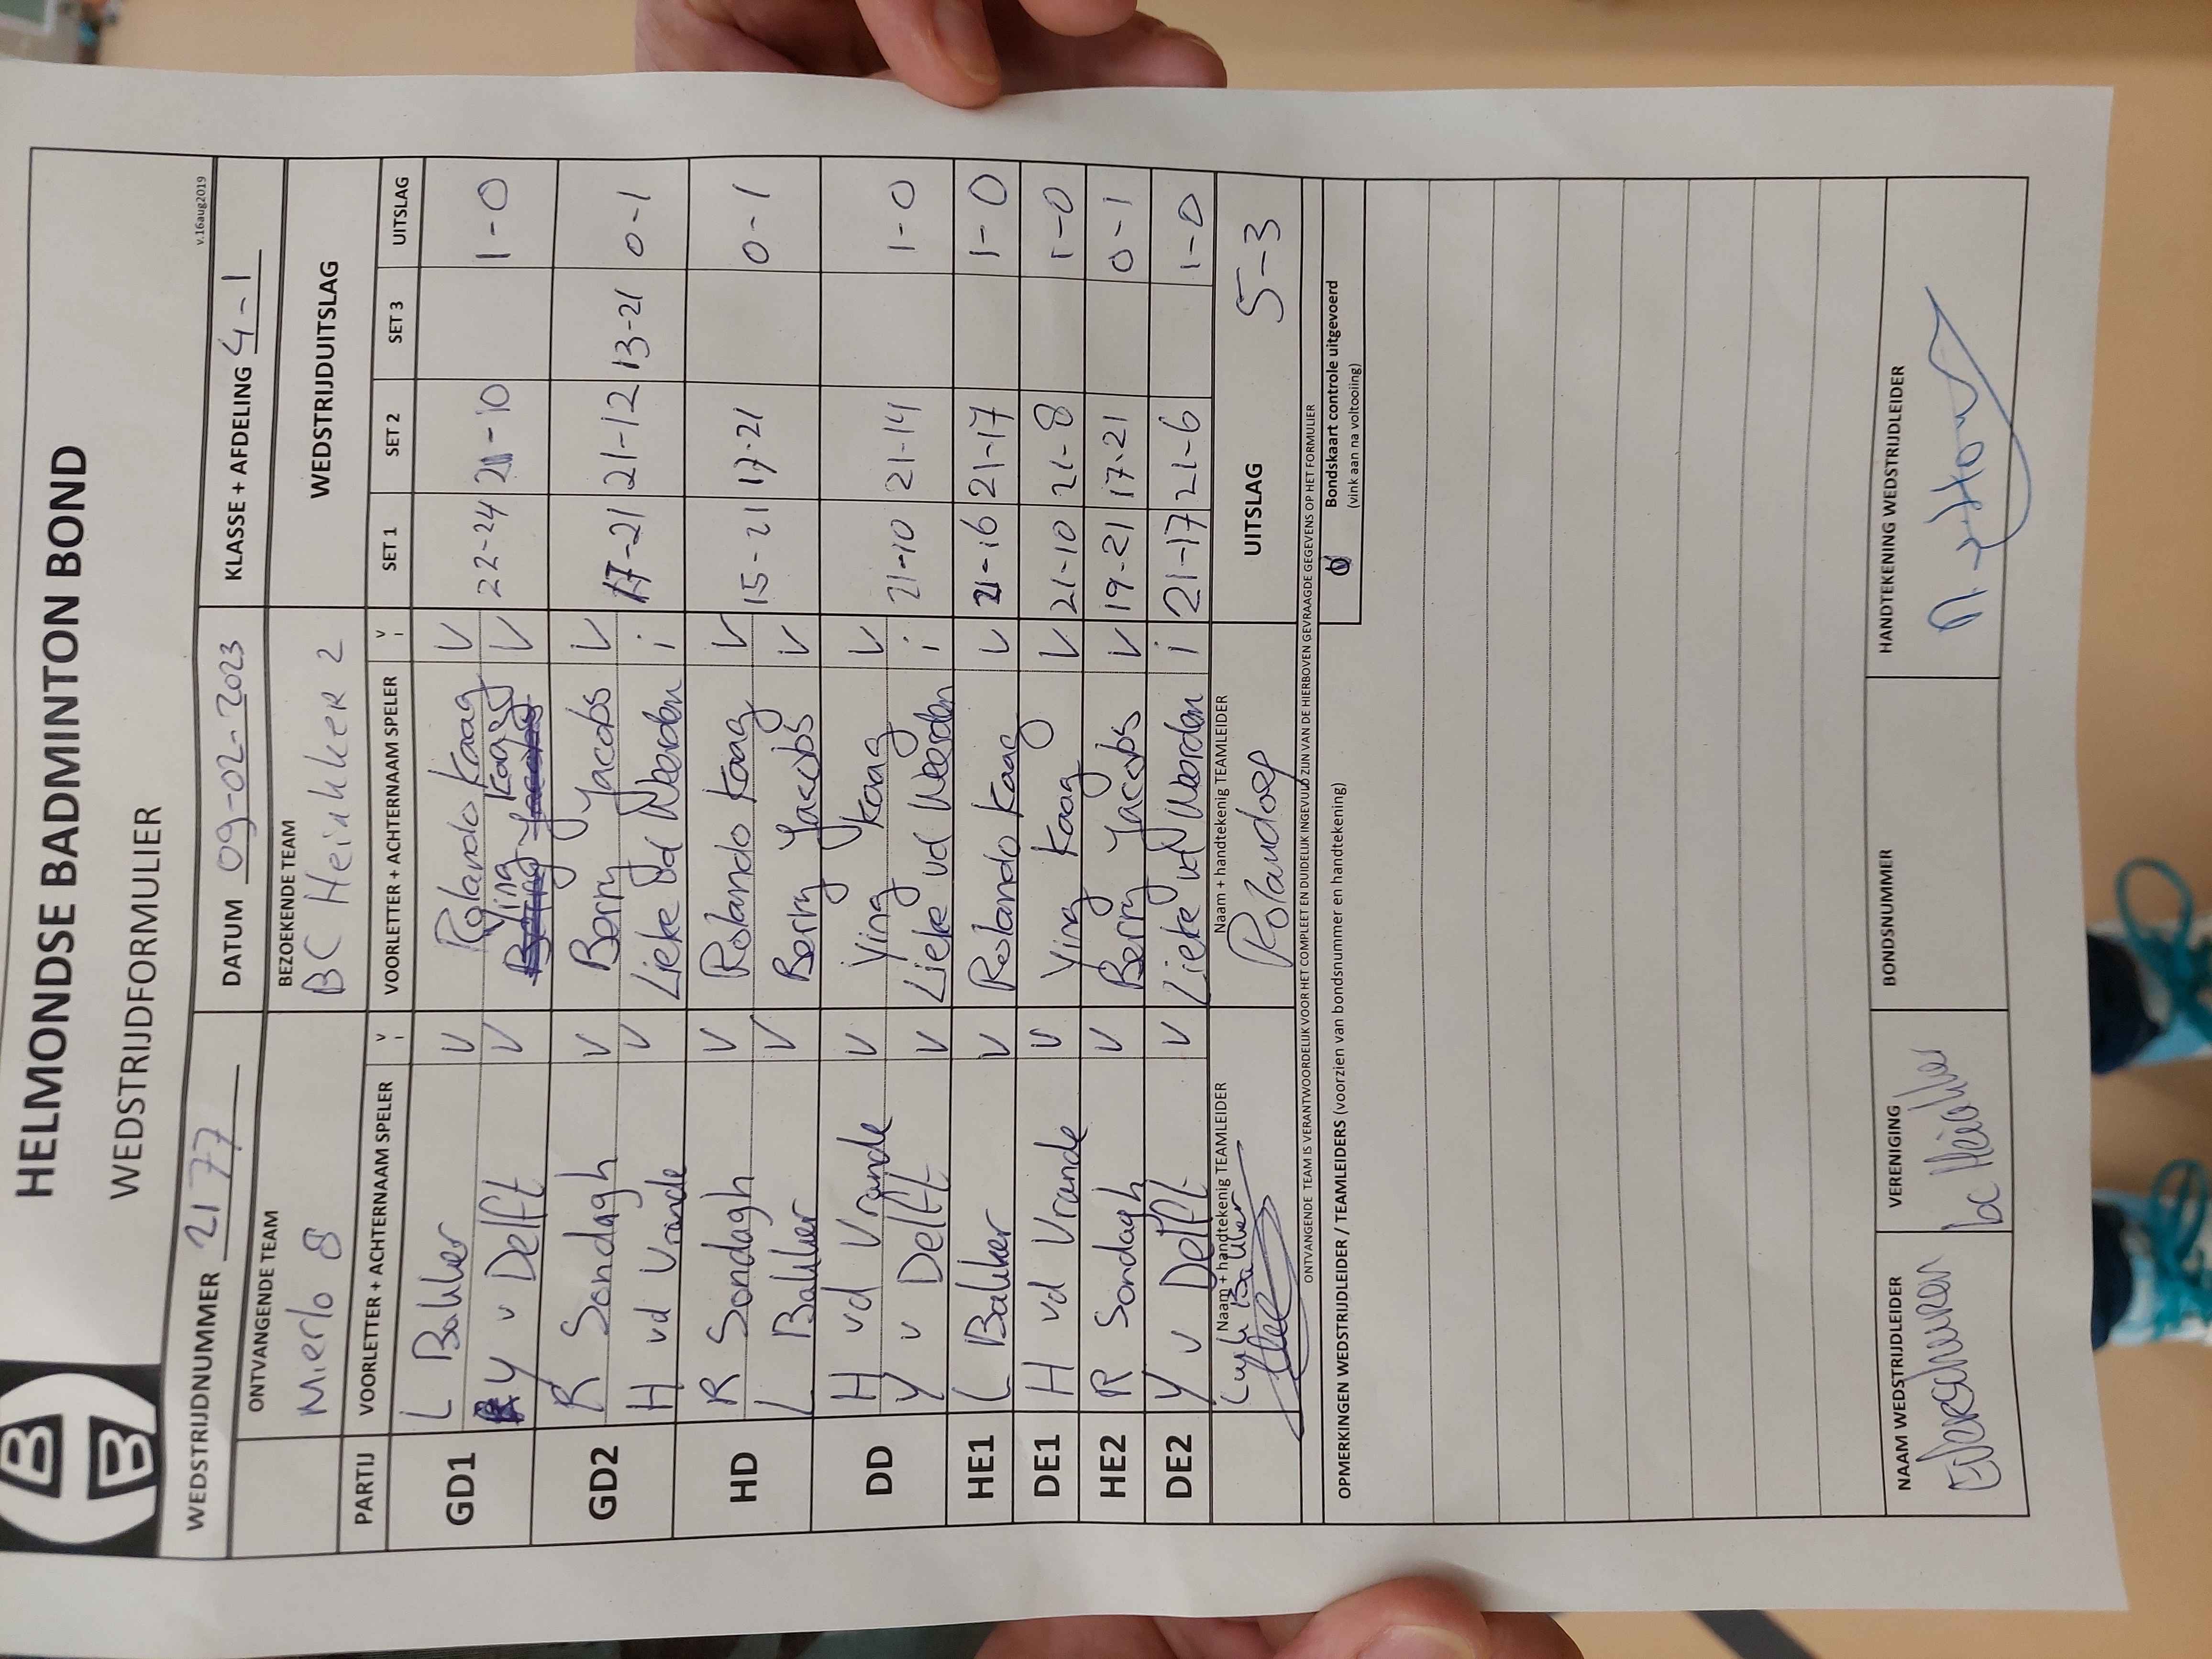 HELMONDSE BADMINTON BOND
WEDSTRIJDFORMULIER
v.16aug2019
WEDSTRIJDNUMMER 2177 DATUM 09-02-2023 KLASSE + AFDELING 4-1
ONTVANGENDE TEAM BEZOEKENDE TEAM WEDSTRIJDUITSLAG
Mierlo 8 BC Heiakker 2
PARTIJ VOORLETTER + ACHTERNAAM SPELER V i VOORLETTER + ACHTERNAAM SPELER V i SET 1 SET 2 SET 3 UITSLAG
GD1 L Bakker V Rolando Kaag V
Y v Delft V Ying Kaag V 22-24 21-10 1-0
GD2 R Sondagh V Berry Jacobs V
H vd Vrande V Lieke vd Weerden i 17-21 21-12 13-21 0-1
HD R Sondagh V Rolando Kaag V
L Bakker V Berry Jacobs V 15-21 17-21 0-1
DD H vd Vrande V Ying Kaag V
Y v Delft V Lieke vd Weerden i 21-10 21-14 1-0
HE1 L Bakker V Rolando Kaag V 21-16 21-17 1-0
DE1 H vd Vrande V Ying Kaag V 21-10 21-8 1-0
HE2 R Sondagh V Berry Jacobs V 19-21 17-21 0-1
DE2 Y v Delft V Lieke vd Weerden i 21-17 21-6 1-0
Naam + handtekenig TEAMLEIDER Naam + handtekenig TEAMLEIDER UITSLAG 5-3
Bakker
ONTVANGENDE TEAM IS VERANTWOORDELIJK VOOR HET COMPLEET EN DUIDELIJK INGEVULD ZIJN VAN DE HIERBOVEN GEVRAAGDE GEGEVENS OP HET FORMULIER
OPMERKINGEN WEDSTRIJDLEIDER / TEAMLEIDERS (voorzien van bondsnummer en handtekening)
Bondskaart controle uitgevoerd
(vink aan na voltooiing)
NAAM WEDSTRIJDLEIDER VERENIGING BONDSNUMMER HANDTEKENING WEDSTRIJDLEIDER
bc Heiakker